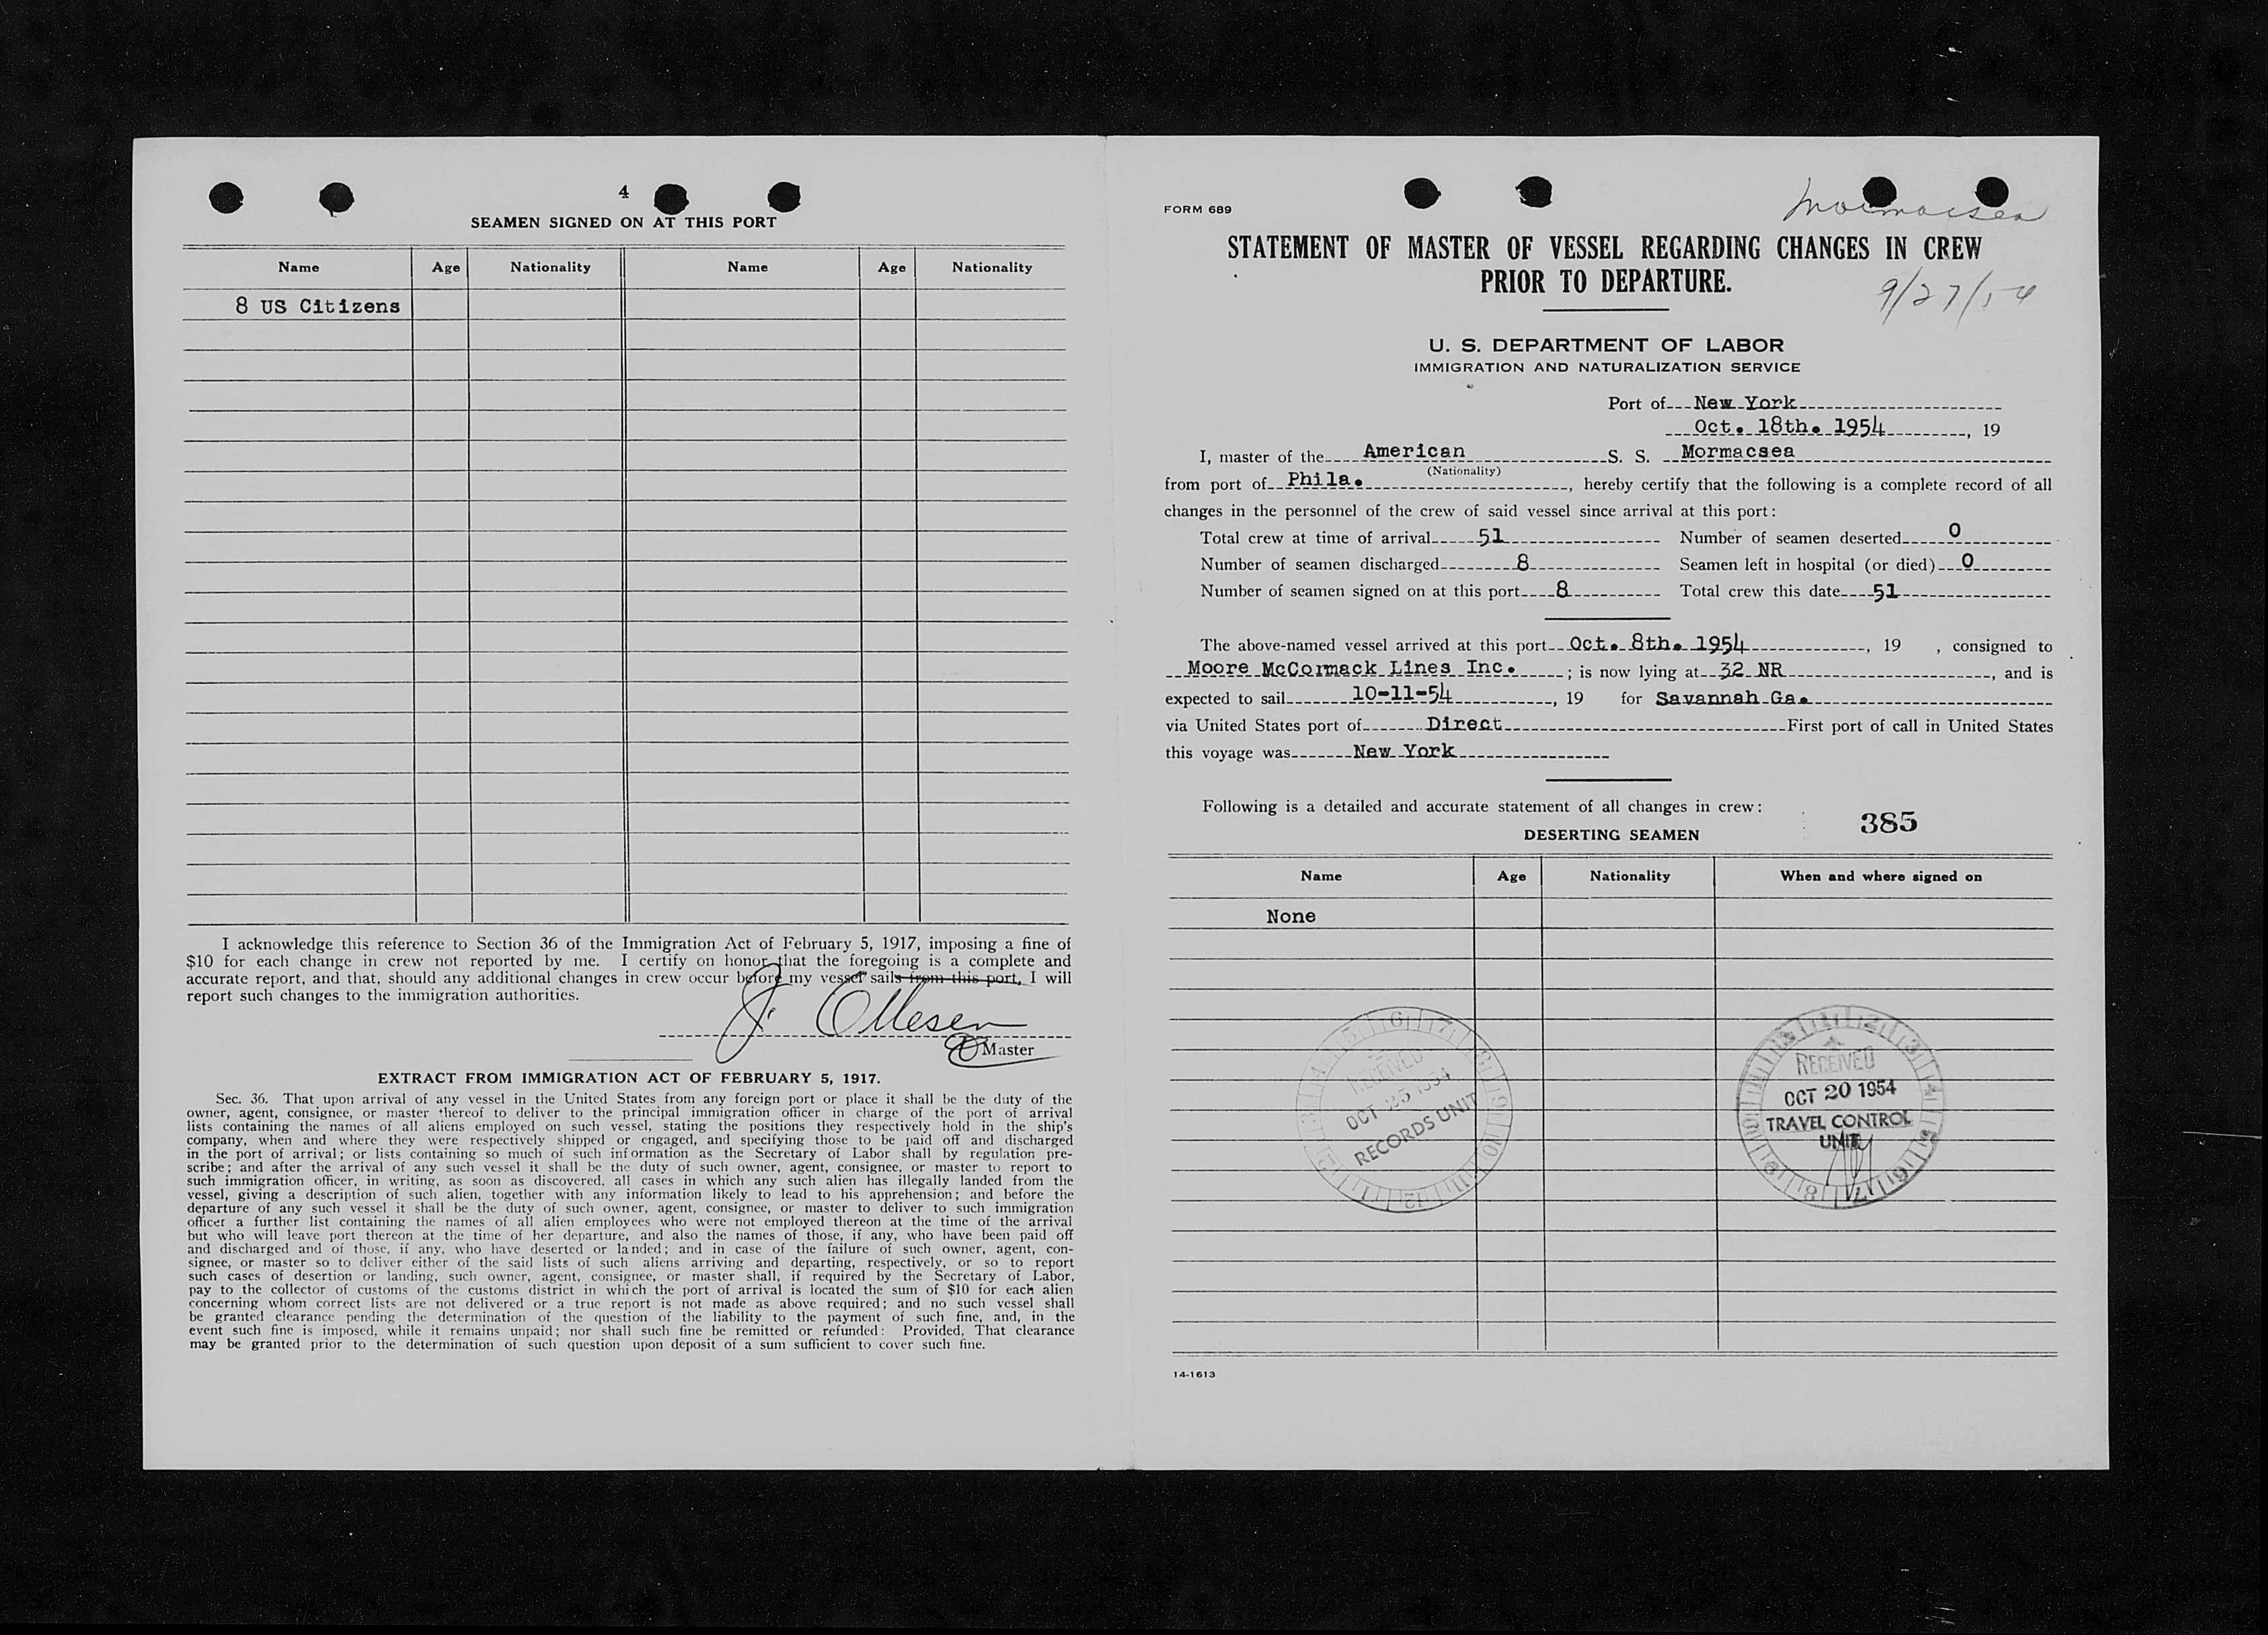 4
SEAMEN SIGNED ON AT THIS PORT
Name Age Nationality Name Age Nationality
8 US Citizens
I acknowledge this reference to Section 36 of the Immigration Act of February 5, 1917, imposing a fine of
$10 for each change in crew not reported by me. I certify on honor that the foregoing is a complete and
accurate report, and that, should any additional changes in crew occur before my vessel sails from this port, I will
report such changes to the immigration authorities.
J. Ollesen
Master
EXTRACT FROM IMMIGRATION ACT OF FEBRUARY 5, 1917.
Sec. 36. That upon arrival of any vessel in the United States from any foreign port or place it shall be the duty of the
owner, agent, consignee, or master thereof to deliver to the principal immigration officer in charge of the port of arrival
lists containing the names of all aliens employed on such vessel, stating the positions they respectively hold in the ship's
company, when and where they were respectively shipped or engaged, and specifying those to be paid off and discharged
in the port of arrival; or lists containing so much of such information as the Secretary of Labor shall by regulation pre-
scribe; and after the arrival of any such vessel it shall be the duty of such owner, agent, consignee, or master to report to
such immigration officer, in writing, as soon as discovered, all cases in which any such alien has illegally landed from the
vessel, giving a description of such alien, together with any information likely to lead to his apprehension; and before the
departure of any such vessel it shall be the duty of such owner, agent, consignee, or master to deliver to such immigration
officer a further list containing the names of all alien employees who were not employed thereon at the time of the arrival
but who will leave port thereon at the time of her departure, and also the names of those, if any, who have been paid off
and discharged and of those, if any, who have deserted or landed; and in case of the failure of such owner, agent, con-
signee, or master so to deliver either of the said lists of such aliens arriving and departing, respectively, or so to report
such cases of desertion or landing, such owner, agent, consignee, or master shall, if required by the Secretary of Labor,
pay to the collector of customs of the customs district in which the port of arrival is located the sum of $10 for each alien
concerning whom correct lists are not delivered or a true report is not made as above required; and no such vessel shall
be granted clearance pending the determination of the question of the liability to the payment of such fine, and, in the
event such fine is imposed, while it remains unpaid; nor shall such fine be remitted or refunded: Provided, That clearance
may be granted prior to the determination of such question upon deposit of a sum sufficient to cover such fine.
FORM 689
Mormacsea
STATEMENT OF MASTER OF VESSEL REGARDING CHANGES IN CREW
PRIOR TO DEPARTURE.
9/27/54
U. S. DEPARTMENT OF LABOR
IMMIGRATION AND NATURALIZATION SERVICE
Port of New York
Oct. 18th. 1954, 19
I, master of the American S. S. Mormacsea
(Nationality)
from port of Phila., hereby certify that the following is a complete record of all
changes in the personnel of the crew of said vessel since arrival at this port:
Total crew at time of arrival 51 Number of seamen deserted 0
Number of seamen discharged 8 Seamen left in hospital (or died) 0
Number of seamen signed on at this port 8 Total crew this date 51
The above-named vessel arrived at this port Oct. 8th. 1954, 19 , consigned to
Moore McCormack Lines Inc. ; is now lying at 32 NR, and is
expected to sail 10-11-54, 19 for Savannah Ga.
via United States port of Direct First port of call in United States
this voyage was New York
Following is a detailed and accurate statement of all changes in crew:
385
DESERTING SEAMEN
Name Age Nationality When and where signed on
None
RECEIVED
OCT 25 1954
RECORDS UNIT
RECEIVED
OCT 20 1954
TRAVEL CONTROL
UNIT
14-1613